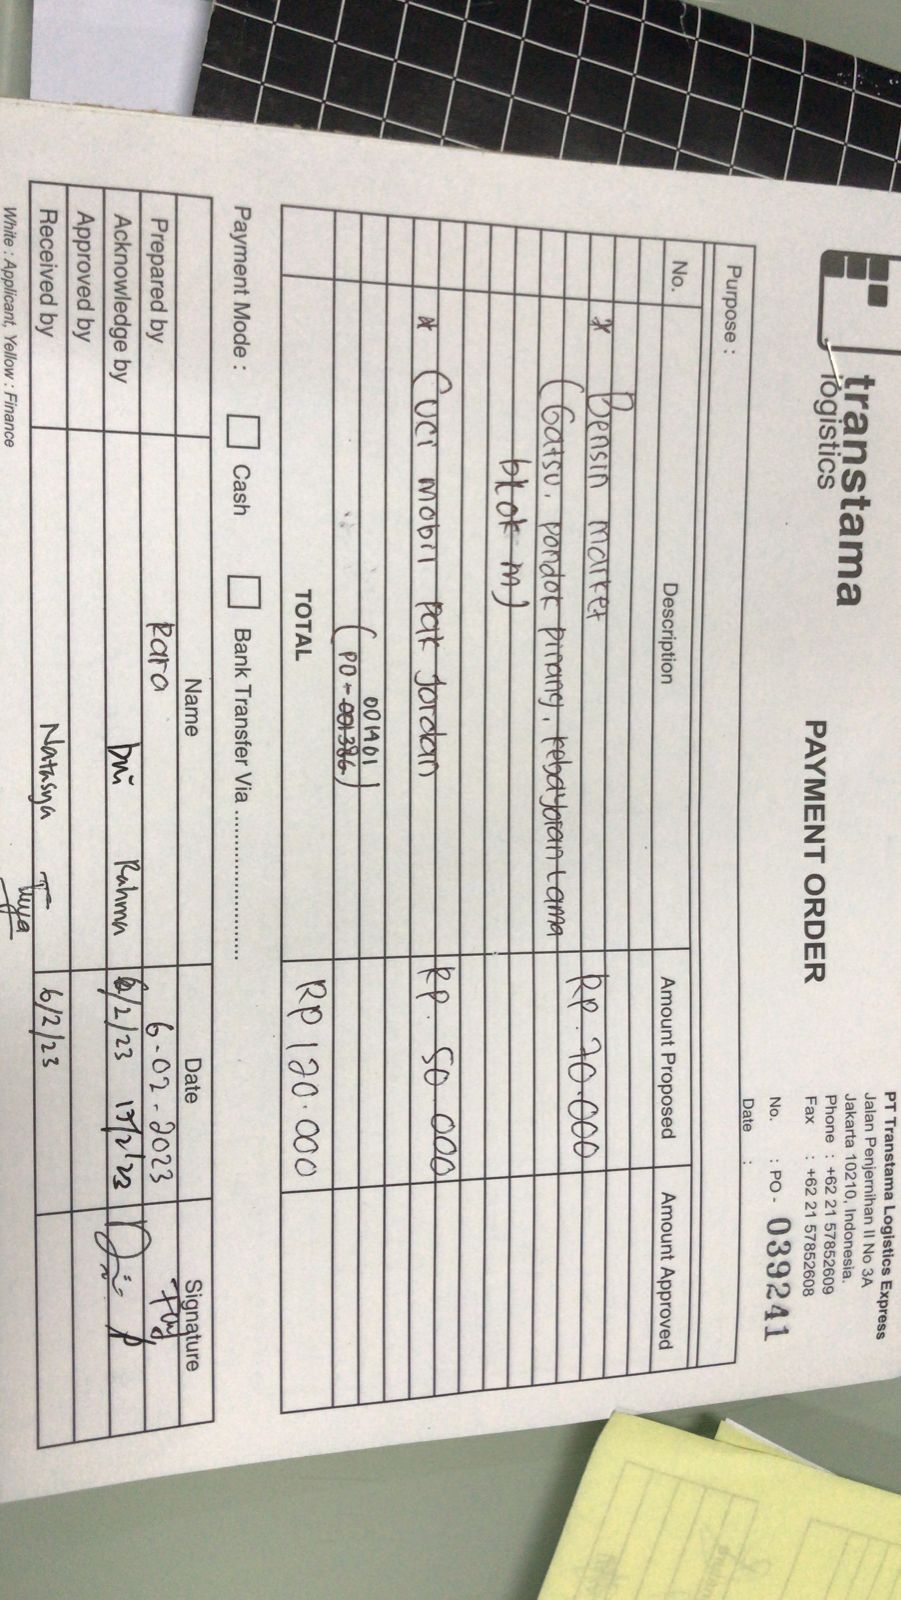 transtama
logistics
PAYMENT ORDER
PT Transtama Logistics Express
Jalan Penjernihan II No 3A
Jakarta 10210, Indonesia.
Phone : +62 21 57852609
Fax : +62 21 57852608
No. : PO - 039241
Date :
Purpose :
No. Description Amount Proposed Amount Approved
* Bensin market Rp. 70.000
(Gatsu, pondok pinang, kebayoran Lama
blok m)
* Cuci mobil pak Jordan Rp. 50.000
001401
(PO - 001386)
TOTAL Rp 120.000
Payment Mode : Cash Bank Transfer Via ........................
Name Date Signature
Prepared by Rara 6-02-2023
Acknowledge by Dwi Rahma 6/2/23 17/2/23
Approved by
Received by Natasya 6/2/23
White : Applicant, Yellow : Finance